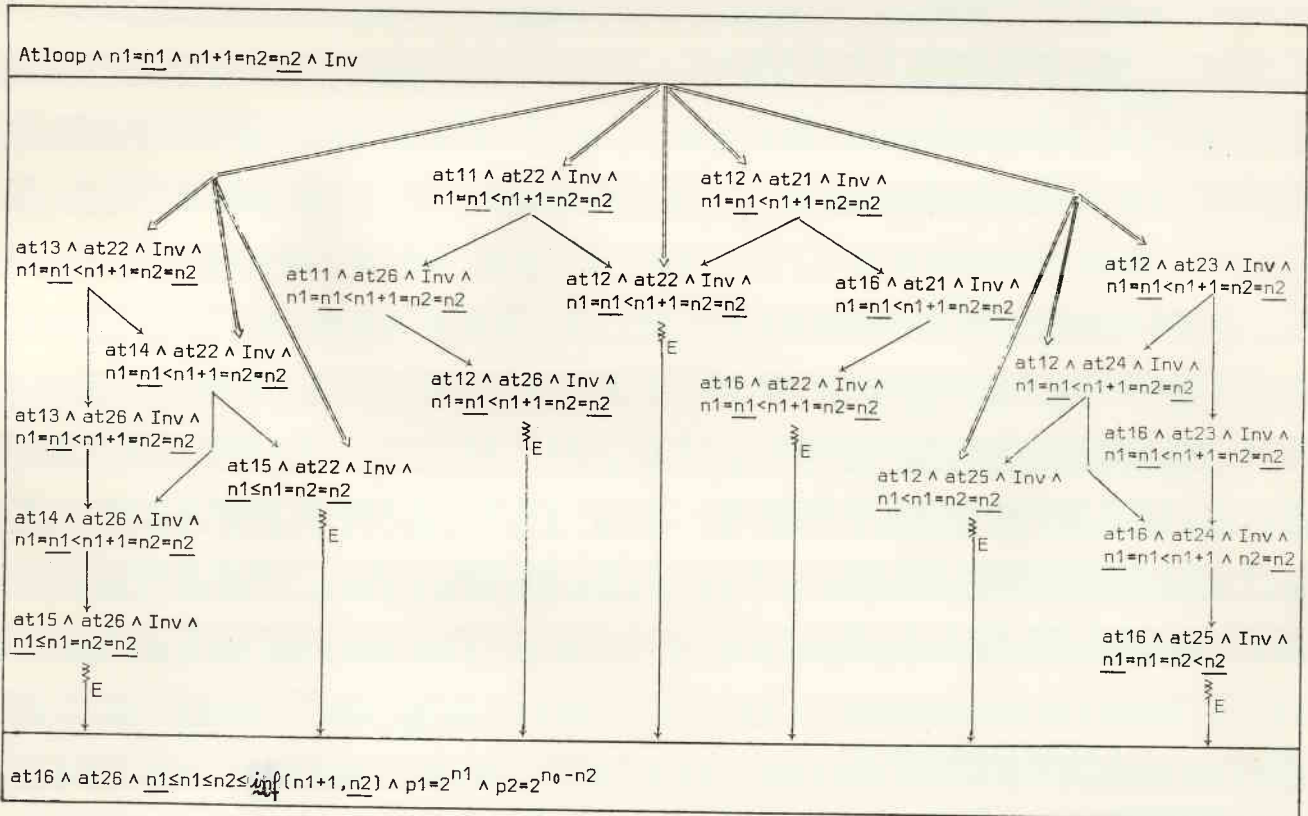 Atloop ∧ n1=n1 ∧ n1+1=n2=n2 ∧ Inv
at11 ∧ at22 ∧ Inv ∧
n1=n1<n1+1=n2=n2
at12 ∧ at21 ∧ Inv ∧
n1=n1<n1+1=n2=n2
at13 ∧ at22 ∧ Inv ∧
n1=n1<n1+1=n2=n2
at11 ∧ at26 ∧ Inv ∧
n1=n1<n1+1=n2=n2
at12 ∧ at22 ∧ Inv ∧
n1=n1<n1+1=n2=n2
E
at16 ∧ at21 ∧ Inv ∧
n1=n1<n1+1=n2=n2
at12 ∧ at23 ∧ Inv ∧
n1=n1<n1+1=n2=n2
at14 ∧ at22 ∧ Inv ∧
n1=n1<n1+1=n2=n2
at12 ∧ at26 ∧ Inv ∧
n1=n1<n1+1=n2=n2
E
at16 ∧ at22 ∧ Inv ∧
n1=n1<n1+1=n2=n2
E
at12 ∧ at24 ∧ Inv ∧
n1=n1<n1+1=n2=n2
at13 ∧ at26 ∧ Inv ∧
n1=n1<n1+1=n2=n2
at16 ∧ at23 ∧ Inv ∧
n1=n1<n1+1=n2=n2
at15 ∧ at22 ∧ Inv ∧
n1≤n1=n2=n2
E
at12 ∧ at25 ∧ Inv ∧
n1<n1=n2=n2
E
at14 ∧ at26 ∧ Inv ∧
n1=n1<n1+1=n2=n2
at16 ∧ at24 ∧ Inv ∧
n1=n1<n1+1 ∧ n2=n2
at15 ∧ at26 ∧ Inv ∧
n1≤n1=n2=n2
E
at16 ∧ at25 ∧ Inv ∧
n1=n1=n2<n2
E
at16 ∧ at26 ∧ n1≤n1≤n2≤inf(n1+1,n2) ∧ p1=2^n1 ∧ p2=2^n₀-n2